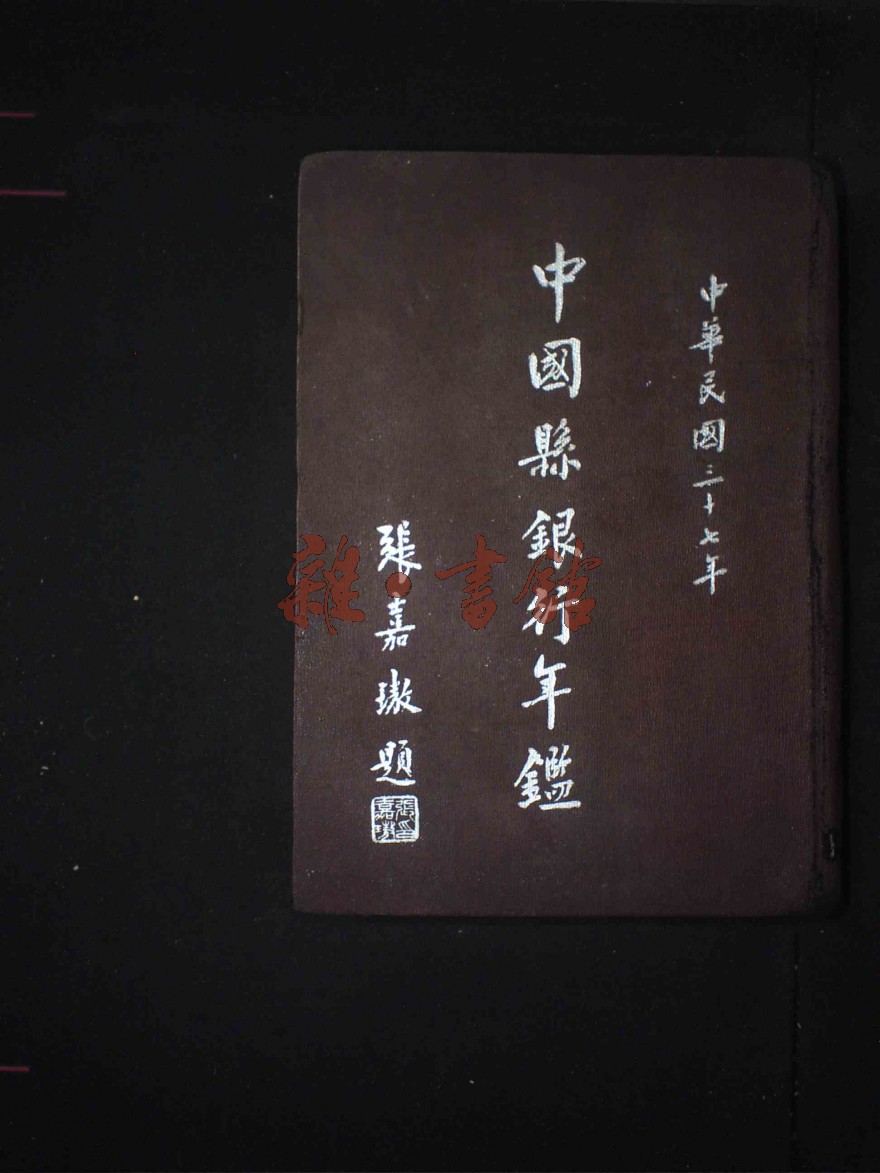 中華民國三十七年
中國縣銀行年鑑
張嘉璈題
張嘉璈印
雜·書館